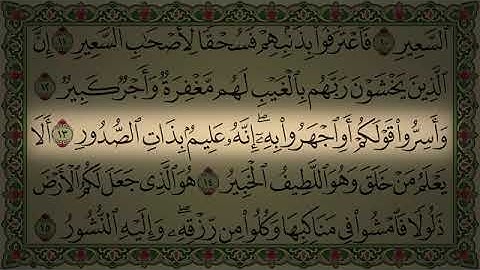 ٱلسَّعِيرِ ١٠ فَٱعْتَرَفُوا۟ بِذَنۢبِهِمْ فَسُحْقًا لِّأَصْحَٰبِ ٱلسَّعِيرِ ١١ إِنَّ
ٱلَّذِينَ يَخْشَوْنَ رَبَّهُم بِٱلْغَيْبِ لَهُم مَّغْفِرَةٌ وَأَجْرٌ كَبِيرٌ ١٢
وَأَسِرُّوا۟ قَوْلَكُمْ أَوِ ٱجْهَرُوا۟ بِهِۦٓ ۖ إِنَّهُۥ عَلِيمٌۢ بِذَاتِ ٱلصُّدُورِ ١٣ أَلَا
يَعْلَمُ مَنْ خَلَقَ وَهُوَ ٱللَّطِيفُ ٱلْخَبِيرُ ١٤ هُوَ ٱلَّذِى جَعَلَ لَكُمُ ٱلْأَرْضَ
ذَلُولًا فَٱمْشُوا۟ فِى مَنَاكِبِهَا وَكُلُوا۟ مِن رِّزْقِهِۦ ۖ وَإِلَيْهِ ٱلنُّشُورُ ١٥